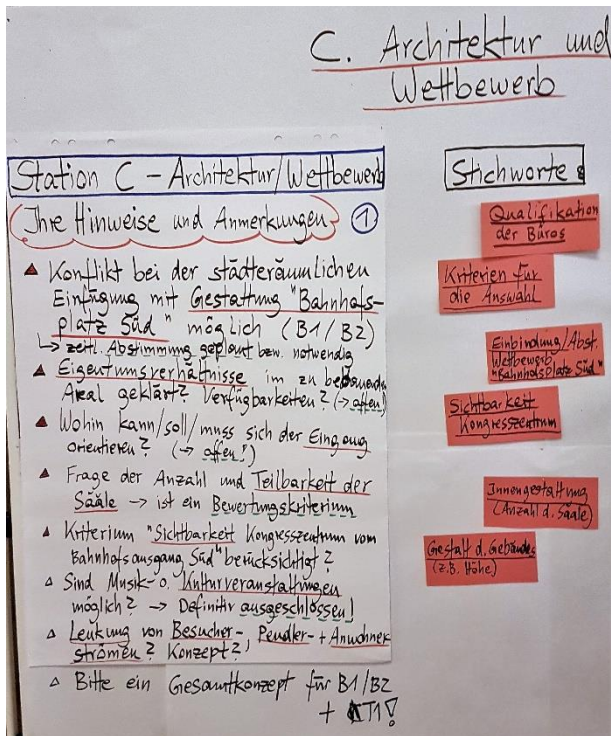 C. Architektur und
Wettbewerb
Station C – Architektur/Wettbewerb
Ihre Hinweise und Anmerkungen ①
▲ Konflikt bei der städteräumlichen
Einfügung mit Gestaltung "Bahnhofs-
platz Süd" möglich (B1/B2)
↳ zeitl. Abstimmung geplant bzw. notwendig
▲ Eigentumsverhältnisse im zu bebauenden
Areal geklärt? Verfügbarkeiten? (→ offen!)
▲ Wohin kann/soll/muss sich der Eingang
orientieren? (→ offen!)
▲ Frage der Anzahl und Teilbarkeit der
Sääle → ist ein Bewertungskriterium
▲ Kriterium "Sichtbarkeit Kongresszentrum vom
Bahnhofsausgang Süd" berücksichtigt?
△ Sind Musik- o. Kulturveranstaltungen
möglich? → Definitiv ausgeschlossen!
△ Lenkung von Besucher- Pendler- + Anwohner
strömen? Konzept?
△ Bitte ein Gesamtkonzept für B1/B2
+ T1!
Stichworte
Qualifikation
der Büros
Kriterien für
die Auswahl
Einbindung/Abst.
Wettbewerb
"Bahnhofsplatz Süd"
Sichtbarkeit
Kongresszentrum
Innengestaltung
(Anzahl d. Sääle)
Gestalt d. Gebäudes
(z.B. Höhe)